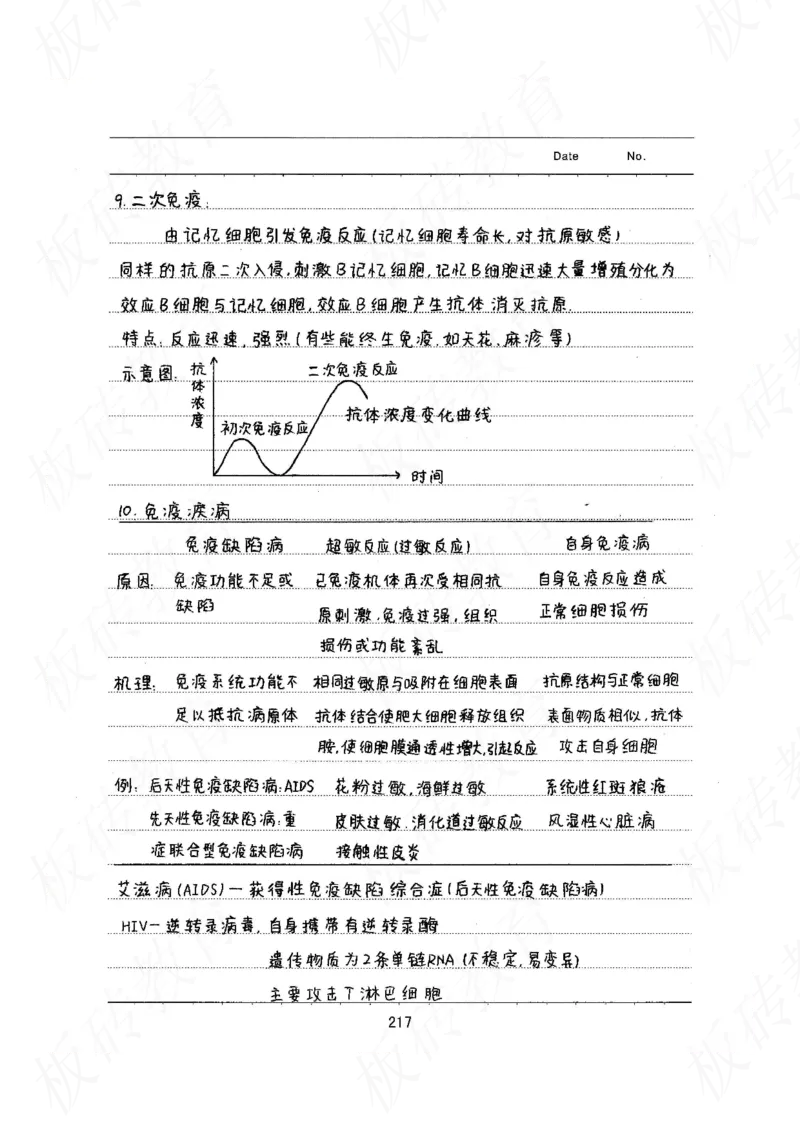 Date No.
9.二次免疫:
由记忆细胞引发免疫反应(记忆细胞寿命长,对抗原敏感)
同样的抗原二次入侵,刺激B记忆细胞,记忆B细胞迅速大量增殖分化为
效应B细胞与记忆细胞,效应B细胞产生抗体消灭抗原.
特点:反应迅速,强烈(有些能终生免疫,如天花、麻疹等)
示意图:
抗体浓度
二次免疫反应
抗体浓度变化曲线
初次免疫反应
时间
10.免疫疾病
免疫缺陷病 超敏反应(过敏反应) 自身免疫病
原因: 免疫功能不足或 已免疫机体再次受相同抗 自身免疫反应造成
缺陷 原刺激,免疫过强,组织 正常细胞损伤
损伤或功能紊乱
机理: 免疫系统功能不 相同过敏原与吸附在细胞表面 抗原结构与正常细胞
足以抵抗病原体 抗体结合使肥大细胞释放组织 表面物质相似,抗体
胺,使细胞膜通透性增大,引起反应 攻击自身细胞
例: 后天性免疫缺陷病:AIDS 花粉过敏,海鲜过敏 系统性红斑狼疮
先天性免疫缺陷病:重 皮肤过敏.消化道过敏反应 风湿性心脏病
症联合型免疫缺陷病 接触性皮炎
艾滋病(AIDS)—获得性免疫缺陷综合症(后天性免疫缺陷病)
HIV—逆转录病毒,自身携带有逆转录酶
遗传物质为2条单链RNA(不稳定,易变异)
主要攻击T淋巴细胞
217
板砖教育